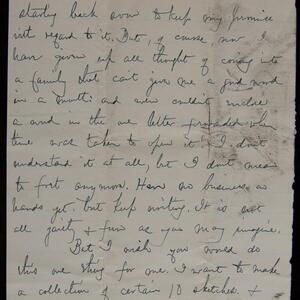 starley back over to keep my promise
with regard to it. But, of course, now I
have given up all thought of coming into
a family that can't give me a good word
in a month: and even couldn't inclose
a word in the one letter forwarded when
time was taken to open it. I don't
understand it at all, but I don't mean
to fort anymore. Have no business on
hands yet; but keep writing. It is not
all gaiety & fun as you may imagine.
But I wish you would do
this one thing for me. I want to make
a collection of certain 10 sketches, &